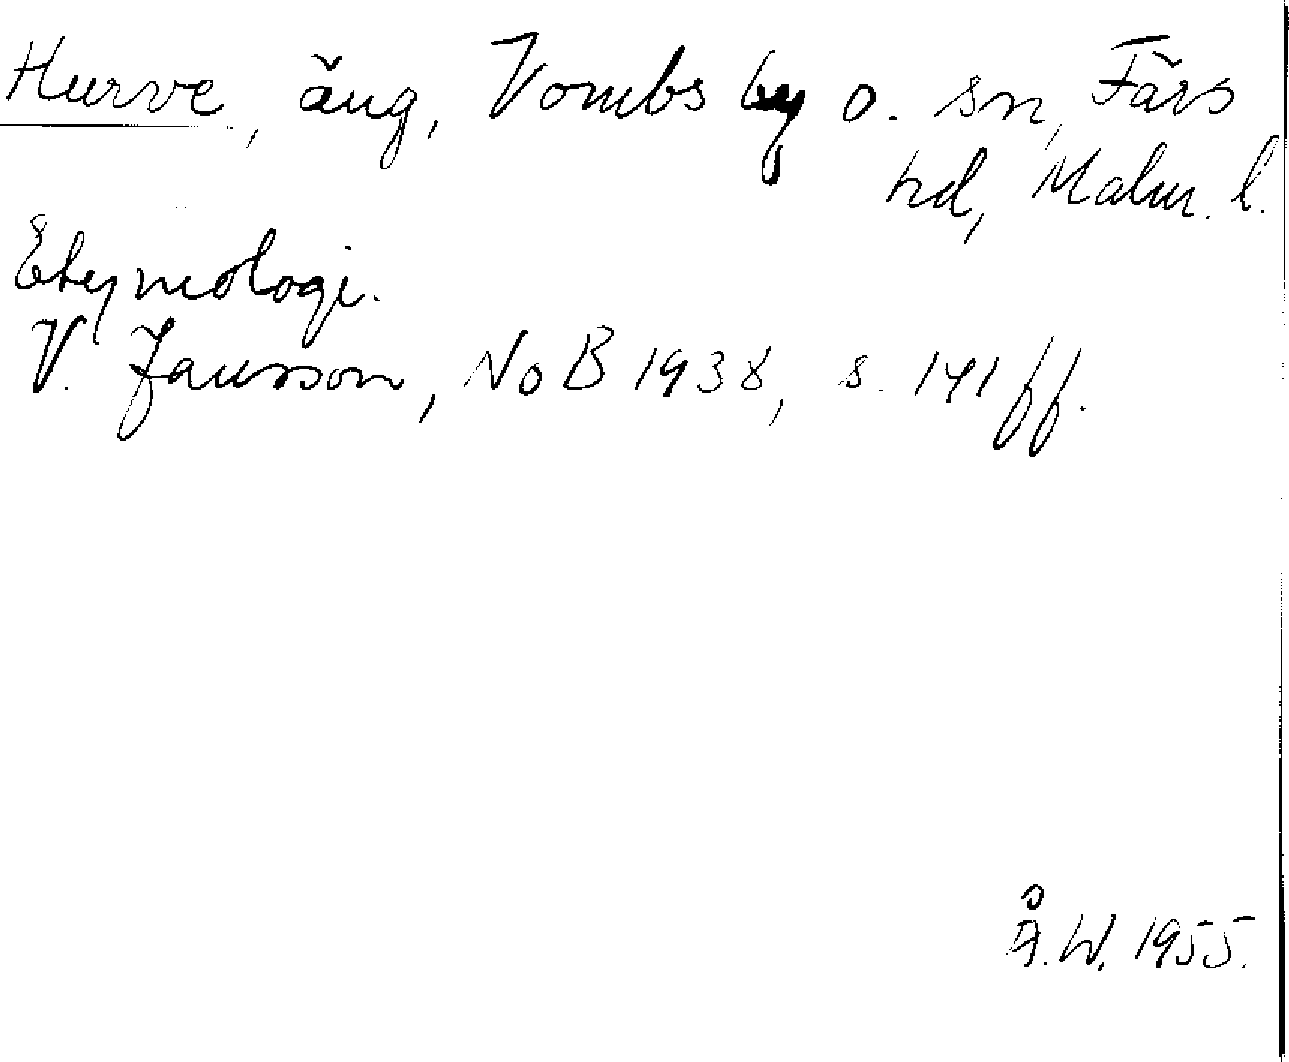 Hurve, äng, Vombs by o. sn, Färs
hd, Malm. l.
Etymologi.
V. Jansson, NoB 1938, s. 141 ff.
Å. W. 1955.